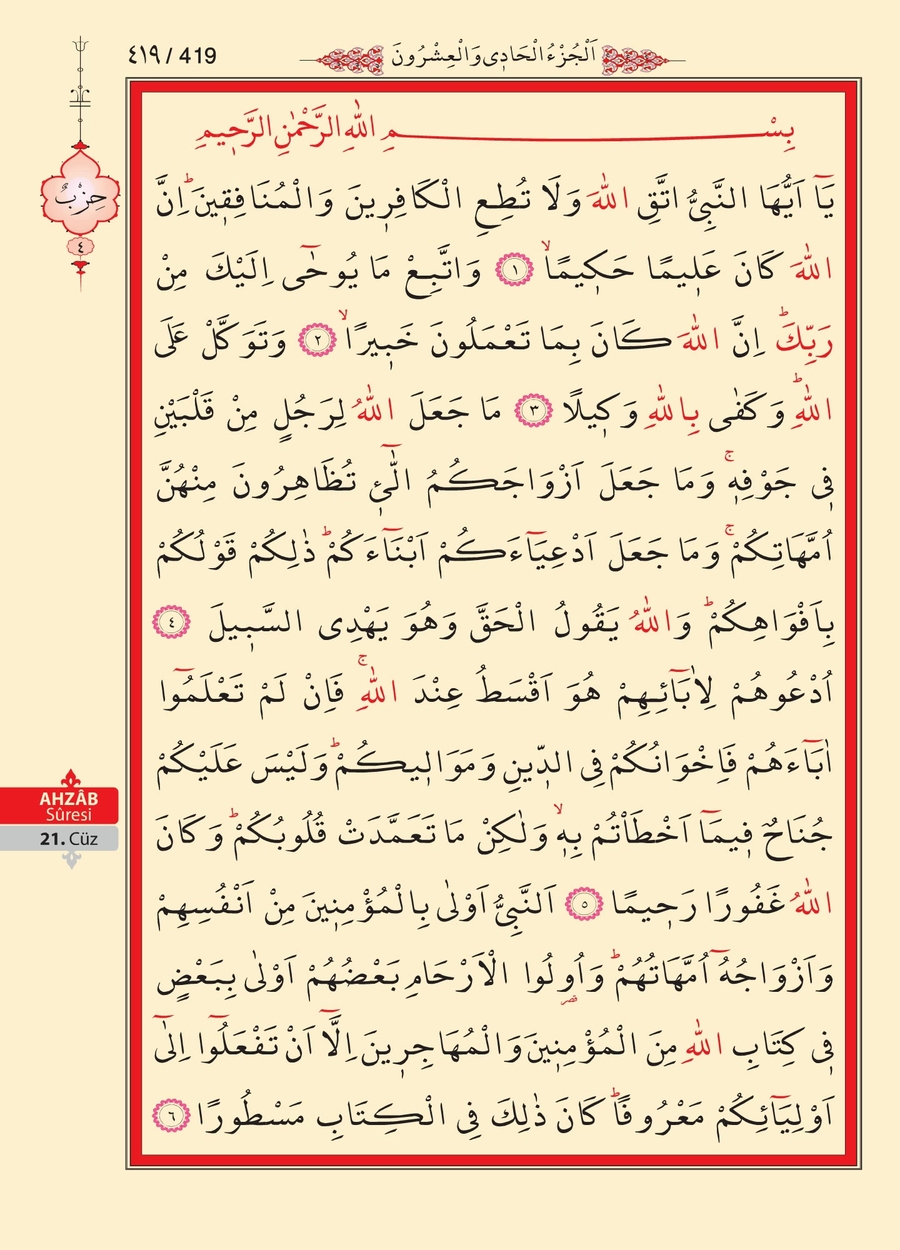 ٤١٩ / 419
اَلْجُزْءُ الْحَادِى وَالْعِشْرُونَ
حِزْبٌ
٤
بِسْمِ اللّٰهِ الرَّحْمٰنِ الرَّحٖيمِ
يَٓا اَيُّهَا النَّبِيُّ اتَّقِ اللّٰهَ وَلَا تُطِعِ الْكَافِرٖينَ وَالْمُنَافِقٖينَؕ اِنَّ
اللّٰهَ كَانَ عَلٖيمًا حَكٖيمًاۙ ﴿١﴾ وَاتَّبِعْ مَا يُوحٰٓى اِلَيْكَ مِنْ
رَبِّكَؕ اِنَّ اللّٰهَ كَانَ بِمَا تَعْمَلُونَ خَبٖيرًاۙ ﴿٢﴾ وَتَوَكَّلْ عَلَى
اللّٰهِؕ وَكَفٰى بِاللّٰهِ وَكٖيلًا ﴿٣﴾ مَا جَعَلَ اللّٰهُ لِرَجُلٍ مِنْ قَلْبَيْنِ
فٖى جَوْفِهٖۚ وَمَا جَعَلَ اَزْوَاجَكُمُ الّٰٓـٖٔى تُظَاهِرُونَ مِنْهُنَّ
اُمَّهَاتِكُمْۚ وَمَا جَعَلَ اَدْعِيَٓاءَكُمْ اَبْنَٓاءَكُمْؕ ذٰلِكُمْ قَوْلُكُمْ
بِاَفْوَاهِكُمْؕ وَاللّٰهُ يَقُولُ الْحَقَّ وَهُوَ يَهْدِى السَّبٖيلَ ﴿٤﴾
اُدْعُوهُمْ لِاٰبَٓائِهِمْ هُوَ اَقْسَطُ عِنْدَ اللّٰهِۚ فَاِنْ لَمْ تَعْلَمُٓوا
اٰبَٓاءَهُمْ فَاِخْوَانُكُمْ فِى الدّٖينِ وَمَوَالٖيكُمْؕ وَلَيْسَ عَلَيْكُمْ
جُنَاحٌ فٖيمَٓا اَخْطَاْتُمْ بِهٖۙ وَلٰكِنْ مَا تَعَمَّدَتْ قُلُوبُكُمْؕ وَكَانَ
اللّٰهُ غَفُورًا رَحٖيمًا ﴿٥﴾ اَلنَّبِيُّ اَوْلٰى بِالْمُؤْمِنٖينَ مِنْ اَنْفُسِهِمْ
وَاَزْوَاجُهُٓ اُمَّهَاتُهُمْؕ وَاُولُوا الْاَرْحَامِ بَعْضُهُمْ اَوْلٰى بِبَعْضٍ
فٖى كِتَابِ اللّٰهِ مِنَ الْمُؤْمِنٖينَ وَالْمُهَاجِرٖينَ اِلَّٓا اَنْ تَفْعَلُٓوا اِلٰٓى
اَوْلِيَٓائِكُمْ مَعْرُوفًاؕ كَانَ ذٰلِكَ فِى الْكِتَابِ مَسْطُورًا ﴿٦﴾
AHZÂB
Sûresi
21. Cüz